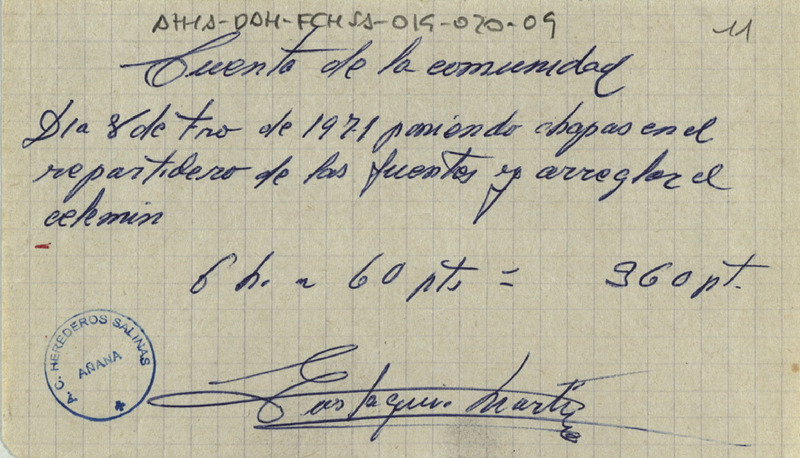 AHHA-DAH-FCHSA-019-020-09
11
Cuenta de la comunidad
Dia 8 de Fro de 1971 poniendo chapas en el
repartidero de las fuentes y arreglar el
celemin
6 h. a 60 pts = 360 pt.
A. C. HEREDEROS SALINAS
AÑANA
Eustaquio Martiz